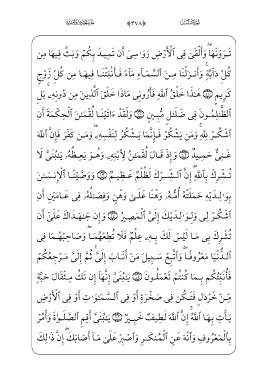 تَرَوْنَهَا وَأَلْقَىٰ فِى ٱلْأَرْضِ رَوَٰسِىَ أَن تَمِيدَ بِكُمْ وَبَثَّ فِيهَا مِن
كُلِّ دَآبَّةٍ وَأَنزَلْنَا مِنَ ٱلسَّمَآءِ مَآءً فَأَنۢبَتْنَا فِيهَا مِن كُلِّ زَوْجٍ
كَرِيمٍ هَٰذَا خَلْقُ ٱللَّهِ فَأَرُونِى مَاذَا خَلَقَ ٱلَّذِينَ مِن دُونِهِۦ بَلِ
ٱلظَّٰلِمُونَ فِى ضَلَٰلٍ مُّبِينٍ وَلَقَدْ ءَاتَيْنَا لُقْمَٰنَ ٱلْحِكْمَةَ أَنِ
ٱشْكُرْ لِلَّهِ وَمَن يَشْكُرْ فَإِنَّمَا يَشْكُرُ لِنَفْسِهِۦ وَمَن كَفَرَ فَإِنَّ ٱللَّهَ
غَنِىٌّ حَمِيدٌ وَإِذْ قَالَ لُقْمَٰنُ لِٱبْنِهِۦ وَهُوَ يَعِظُهُۥ يَٰبُنَىَّ لَا
تُشْرِكْ بِٱللَّهِ إِنَّ ٱلشِّرْكَ لَظُلْمٌ عَظِيمٌ وَوَصَّيْنَا ٱلْإِنسَٰنَ
بِوَٰلِدَيْهِ حَمَلَتْهُ أُمُّهُۥ وَهْنًا عَلَىٰ وَهْنٍ وَفِصَٰلُهُۥ فِى عَامَيْنِ أَنِ
ٱشْكُرْ لِى وَلِوَٰلِدَيْكَ إِلَىَّ ٱلْمَصِيرُ وَإِن جَٰهَدَاكَ عَلَىٰٓ أَن
تُشْرِكَ بِى مَا لَيْسَ لَكَ بِهِۦ عِلْمٌ فَلَا تُطِعْهُمَا وَصَاحِبْهُمَا فِى
ٱلدُّنْيَا مَعْرُوفًا وَٱتَّبِعْ سَبِيلَ مَنْ أَنَابَ إِلَىَّ ثُمَّ إِلَىَّ مَرْجِعُكُمْ
فَأُنَبِّئُكُم بِمَا كُنتُمْ تَعْمَلُونَ يَٰبُنَىَّ إِنَّهَآ إِن تَكُ مِثْقَالَ حَبَّةٍ
مِّنْ خَرْدَلٍ فَتَكُن فِى صَخْرَةٍ أَوْ فِى ٱلسَّمَٰوَٰتِ أَوْ فِى ٱلْأَرْضِ
يَأْتِ بِهَا ٱللَّهُ إِنَّ ٱللَّهَ لَطِيفٌ خَبِيرٌ يَٰبُنَىَّ أَقِمِ ٱلصَّلَوٰةَ وَأْمُرْ
بِٱلْمَعْرُوفِ وَٱنْهَ عَنِ ٱلْمُنكَرِ وَٱصْبِرْ عَلَىٰ مَآ أَصَابَكَ إِنَّ ذَٰلِكَ